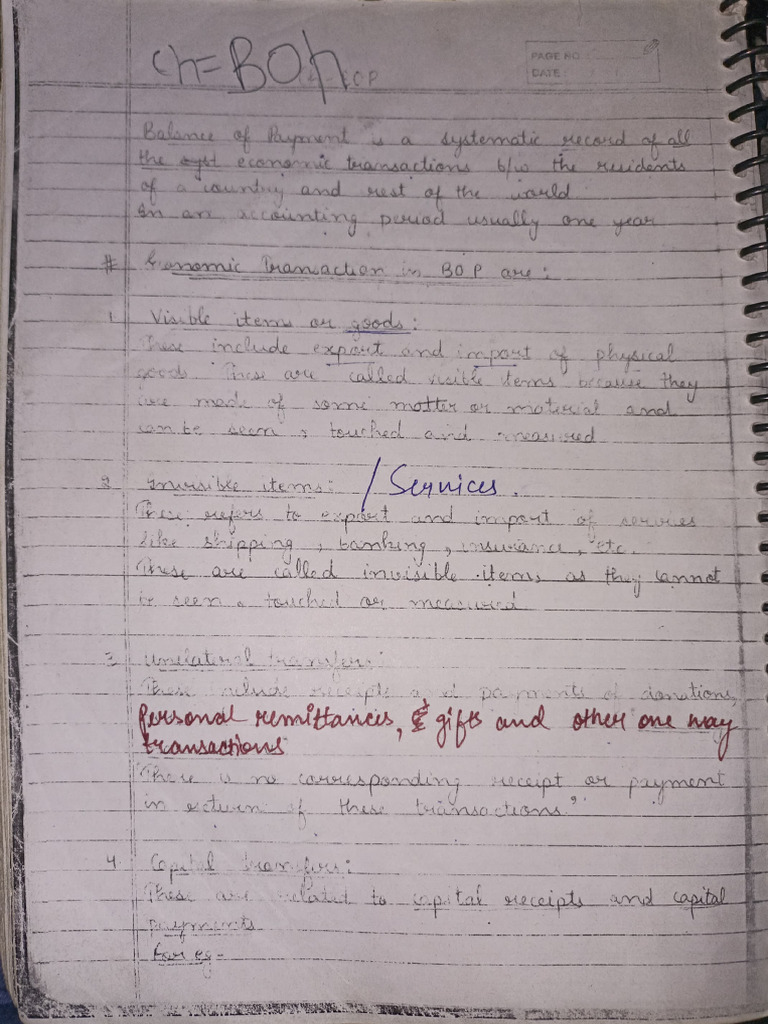 Ch = BOP
BOP
PAGE NO
DATE
Balance of Payment is a systematic record of all
the economic transactions b/w the residents
of a country and rest of the world
In an accounting period usually one year
# Economic Transaction in BOP are:
1 Visible items or goods:
These include export and import of physical
goods. These are called visible items because they
are made of some matter or material and
can be seen, touched and measured
2 Invisible items: / Services.
These refers to export and import of services
like shipping, banking, insurance, etc.
These are called invisible items as they cannot
be seen, touched or measured
3 Unilateral transfers:
These include receipts and payments of donations,
Personal remittances, gifts and other one way
transactions
There is no corresponding receipt or payment
in return of these transactions.
4 Capital transfers:
These are related to capital receipts and capital
payments
For eg-